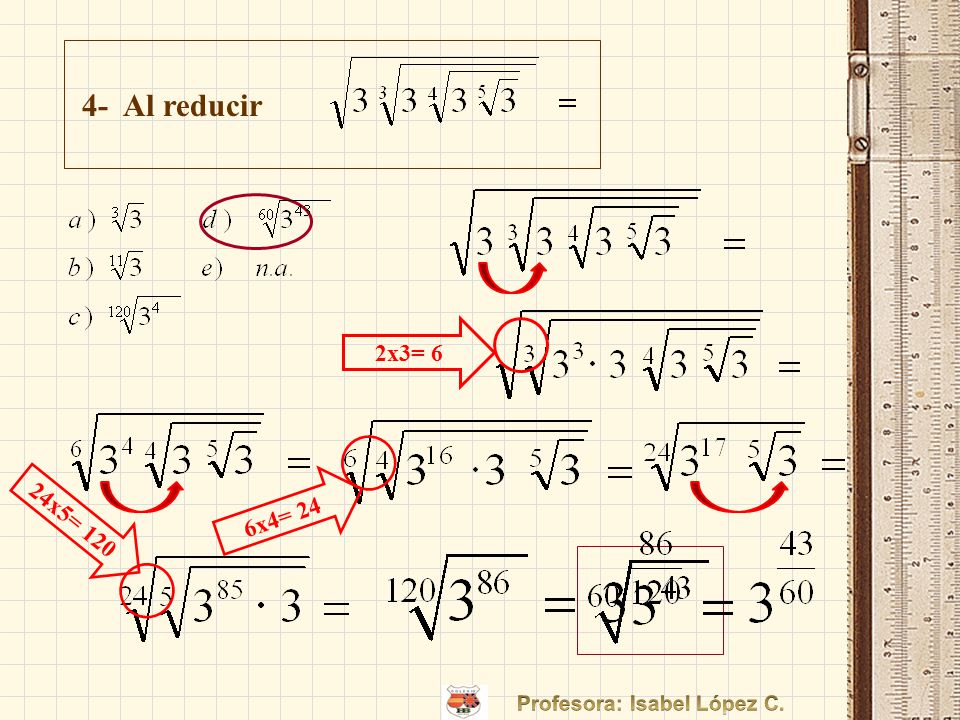 4- Al reducir √(3 ∛(3 ⁴√(3 ⁵√3))) =
a) ∛3 d) ⁶⁰√(3⁴³)
b) ¹¹√3 e) n.a.
c) ¹²⁰√(3⁴)
√(3 ∛(3 ⁴√(3 ⁵√3))) =
2x3= 6
√(∛(3³ · 3 ⁴√(3 ⁵√3))) =
⁶√(3⁴ ⁴√(3 ⁵√3)) = ⁶√(⁴√(3¹⁶ · 3 ⁵√3)) = ²⁴√(3¹⁷ ⁵√3) =
24x5= 120
6x4= 24
²⁴√(⁵√(3⁸⁵ · 3)) = ¹²⁰√(3⁸⁶) = 3^(86/120) = 3^(43/60)
⁶⁰√(3⁴³)
Profesora: Isabel López C.